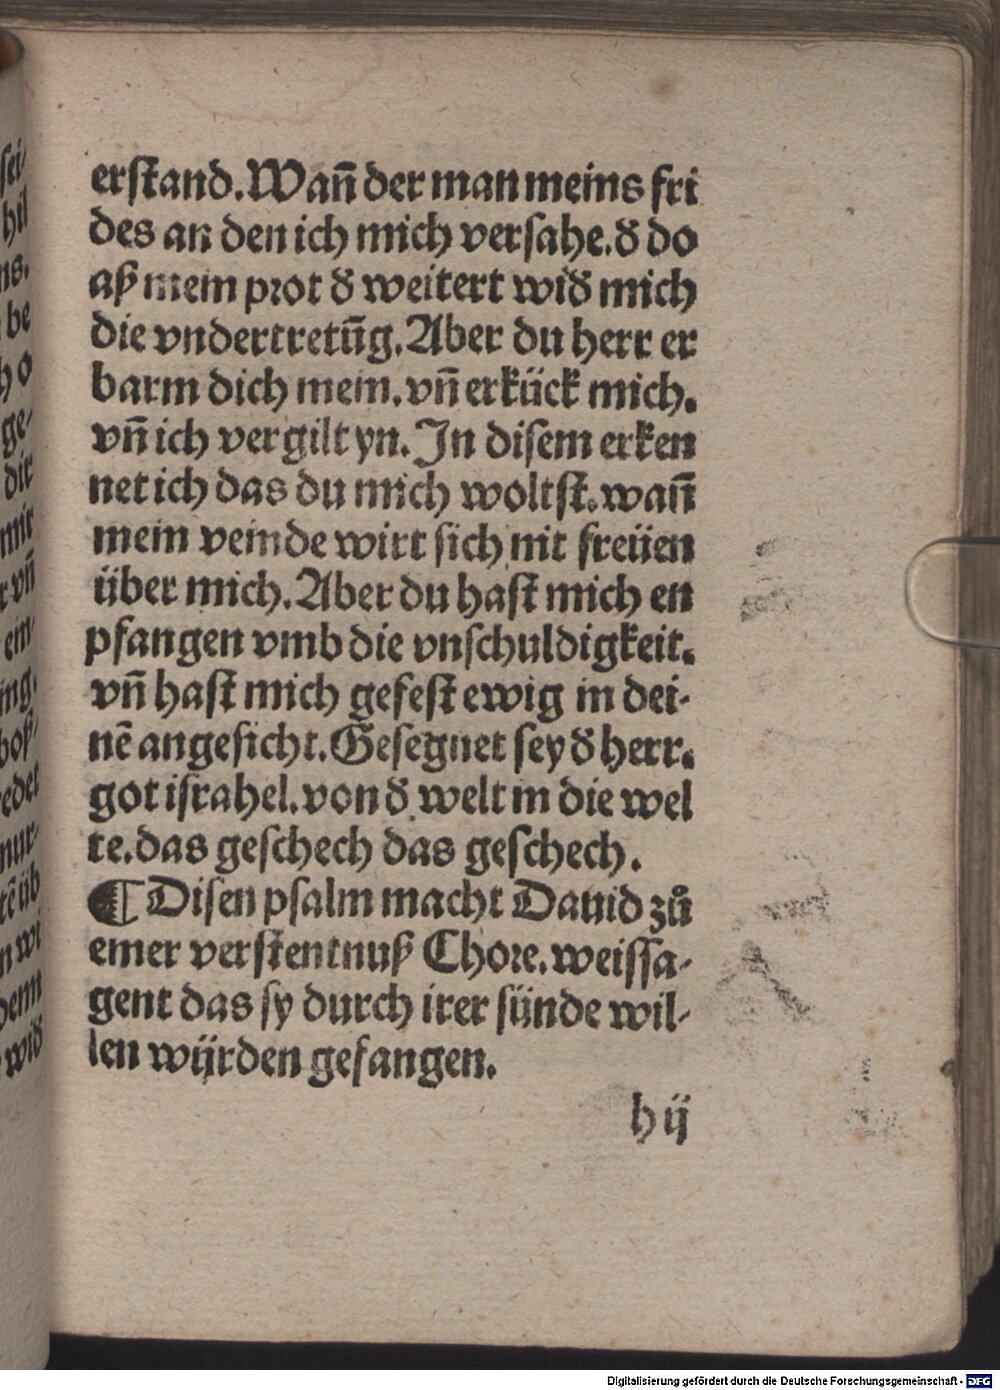 erſtand. Wañ der man meins fri
des an den ich mich verſahe. ď do
aß mein prot ď weitert wiď mich
die vndertretūg. Aber du herr er
barm dich mein. vñ erkück mich.
vñ ich vergilt yn. In diſem erken
net ich das du mich woltſt. wañ
mein veinde wirt ſich nit freüen
über mich. Aber du haſt mich en
pfangen vmb die vnſchuldigkeit.
vñ haſt mich gefeſt ewig in dei-
nē angeſicht. Geſegnet ſey ď herr.
got iſrahel. von ď welt in die wel
te. das geſchech das geſchech.
¶ Diſen pſalm macht Dauid zů
einer verſtentnuß Chore. weiſſa-
gent das ſy durch irer ſünde wil-
len würden gefangen.
h ij
Digitalisierung gefördert durch die Deutsche Forschungsgemeinschaft - DFG